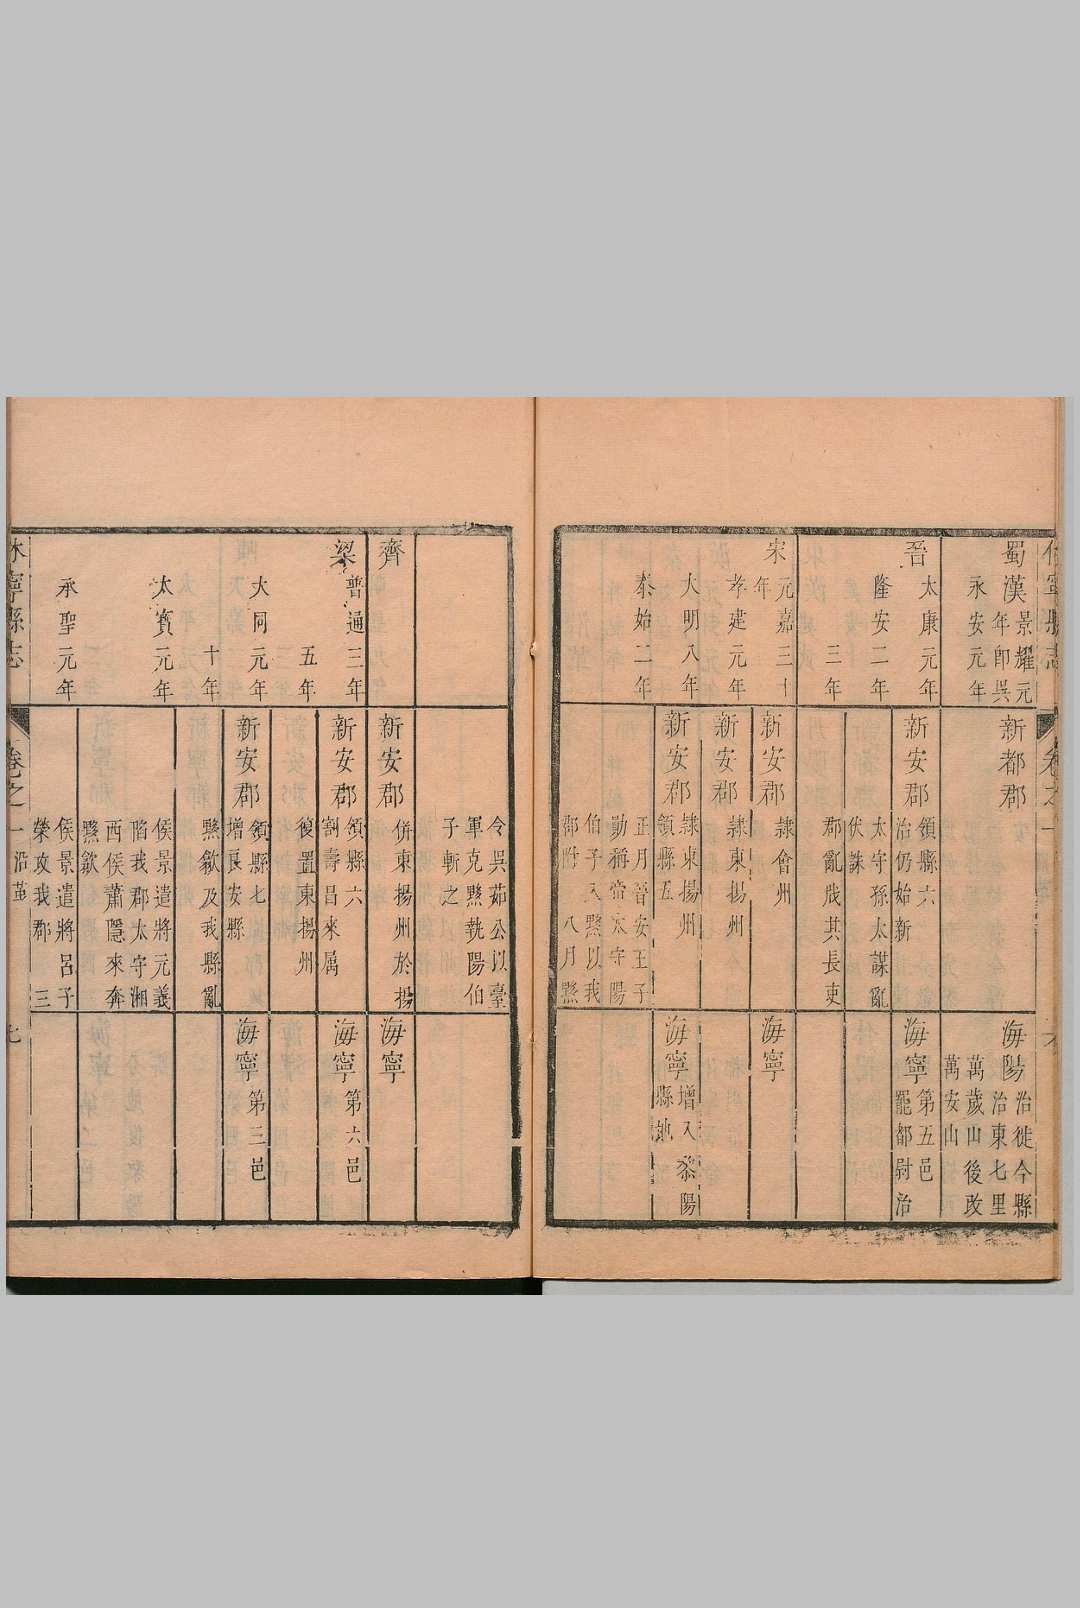 寧縣志
卷之一
蜀漢景耀元
年即吳
永安元年
新都郡
海陽
治徙今縣
治東七里
萬歲山後改
萬安山
晉
太康元年
新安郡
領縣六
治仍始新
海寧
第五邑
罷都尉治
隆安二年
太守孫太謀亂
伏誅
三年
郡亂戕其長吏
宋
元嘉三十
年
新安郡
隸會州
海寧
孝建元年
新安郡
隸東揚州
大明八年
新安郡
隸東揚州
領縣五
海寧
增入黎陽
縣地
泰始二年
正月晉安王子
勛稱帝太守陽
伯子入黟以我
郡附 八月黟
令吳茹公以臺
軍克黟執陽伯
子斬之
齊
新安郡
併東揚州於揚
海寧
梁
普通三年
新安郡
領縣六
割壽昌來屬
海寧
第六邑
五年
復置東揚州
大同元年
新安郡
領縣七
增良安縣
海寧
第三邑
十年
黟歙及我縣亂
太寶元年
侯景遣將元義
陷我郡太守湘
西侯蕭隱來奔
黟歙
承聖元年
侯景遣將呂子
榮攻我郡 三
休寧縣志
卷之一
沿革
七